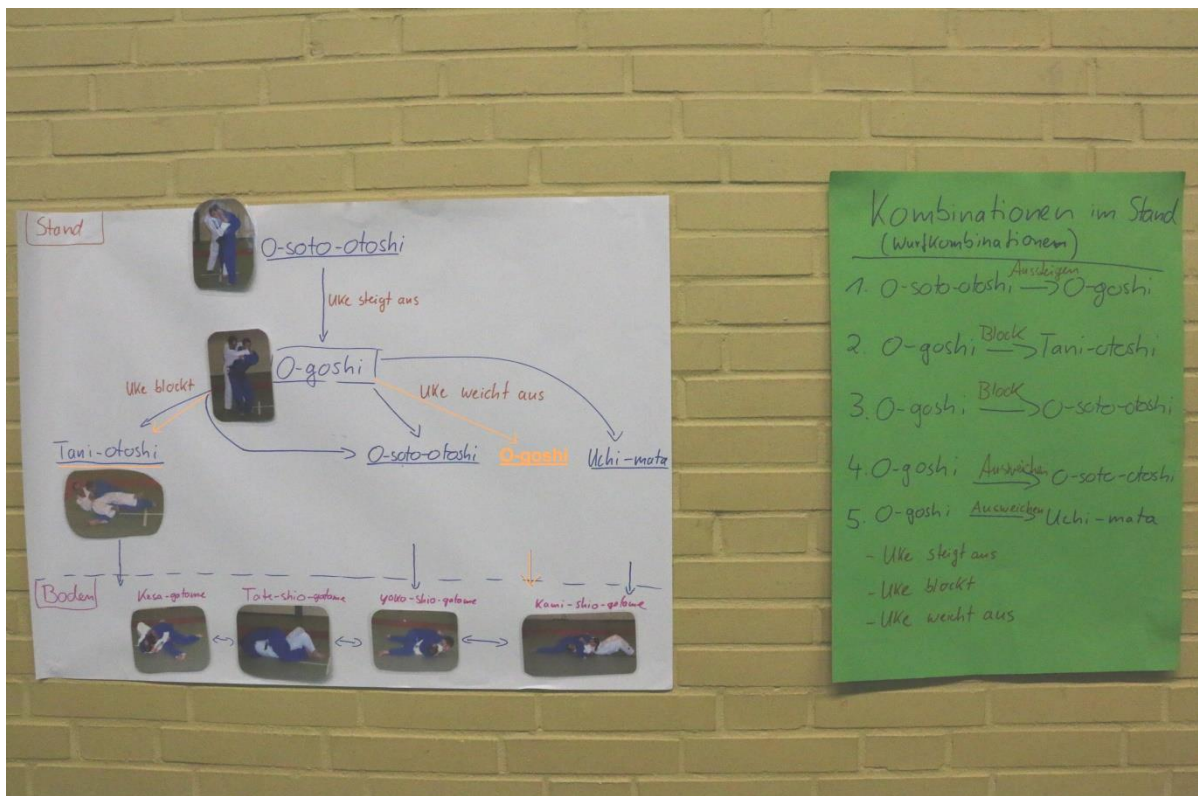 Stand
O-soto-otoshi
Uke steigt aus
O-goshi
Uke blockt
Uke weicht aus
Tani-otoshi
O-soto-otoshi
O-goshi
Uchi-mata
Boden
Kesa-gatame
Tate-shio-gatame
yoko-shio-gatame
Kami-shio-gatame
Kombinationen im Stand
(Wurfkombinationen)
1. O-soto-otoshi Aussteigen → O-goshi
2. O-goshi Block → Tani-otoshi
3. O-goshi Block → O-soto-otoshi
4. O-goshi Ausweichen → O-soto-otoshi
5. O-goshi Ausweichen → Uchi-mata
- Uke steigt aus
- Uke blockt
- Uke weicht aus